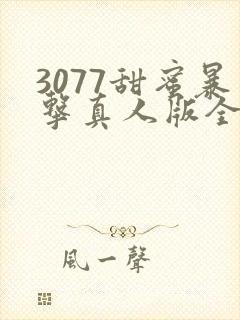 3077甜蜜暴
擊真人版全
風一聲